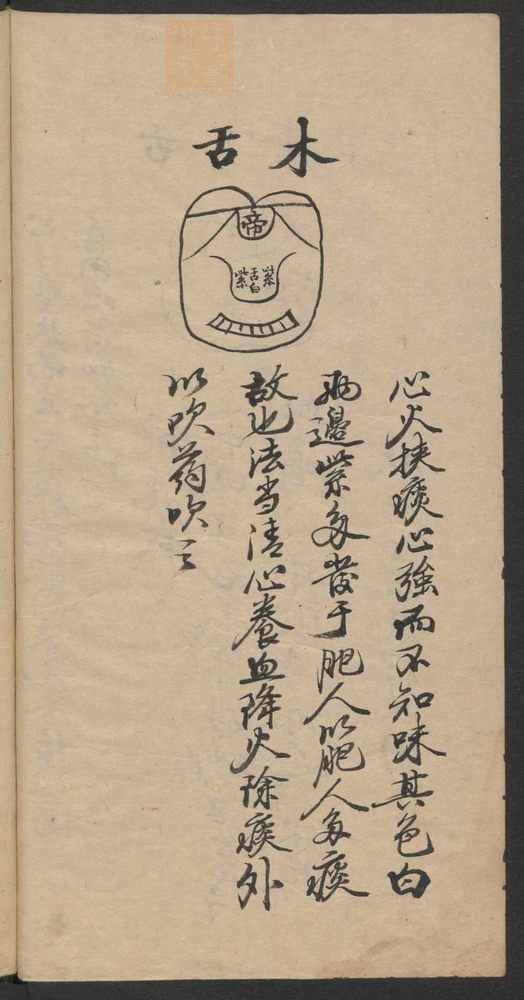 木舌
帝
紫 舌白 紫
心火挟痰心强而不知味其色白
两邉紫多發于肥人以肥人多痰
故也法当清心養血降火除痰外
以吹药吹之